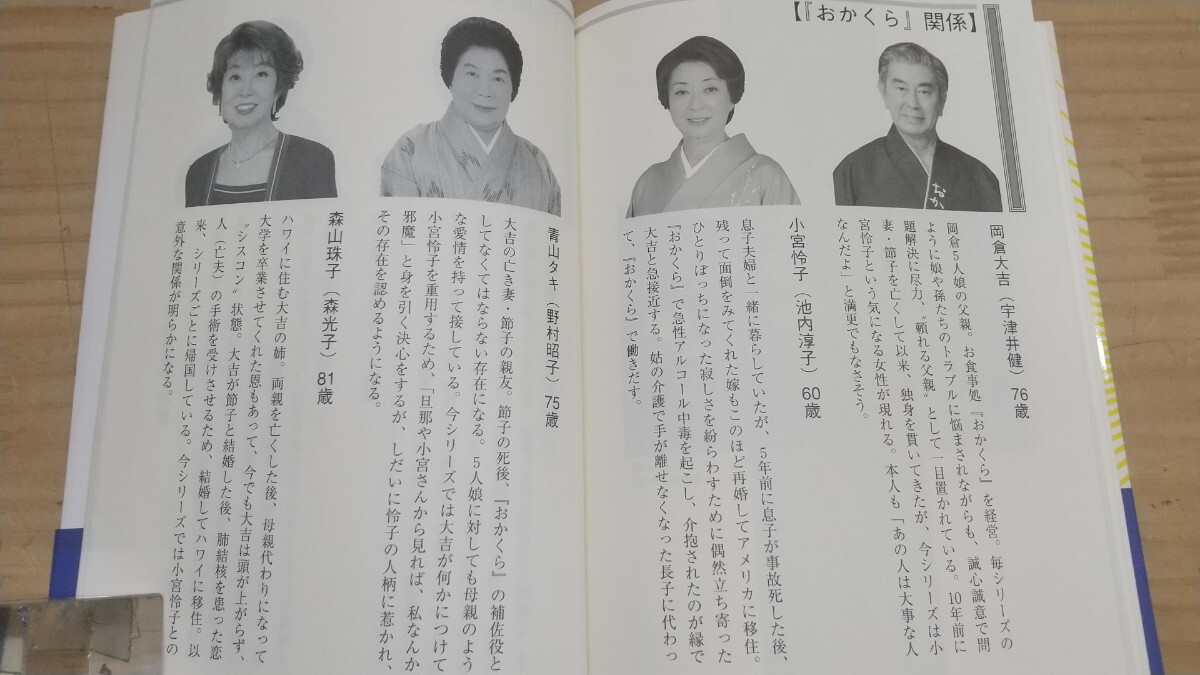 【『おかくら』関係】
なか
岡倉大吉（宇津井健）76歳
岡倉5人娘の父親。お食事処『おかくら』を経営。毎シリーズの
ように娘や孫たちのトラブルに悩まされながらも、誠心誠意で問
題解決に尽力、〝頼れる父親〟として一目置かれている。10年前に
妻・節子を亡くして以来、独身を貫いてきたが、今シリーズは小
宮怜子という気になる女性が現れる。本人も「あの人は大事な人
なんだよ」と満更でもなさそう。
小宮怜子（池内淳子）60歳
息子夫婦と一緒に暮らしていたが、5年前に息子が事故死した後、
残って面倒をみてくれた嫁もこのほど再婚してアメリカに移住。
ひとりぼっちになった寂しさを紛らわすために偶然立ち寄った
『おかくら』で急性アルコール中毒を起こし、介抱されたのが縁で
大吉と急接近する。姑の介護で手が離せなくなった長子に代わっ
て、『おかくら』で働きだす。
青山タキ（野村昭子）75歳
大吉の亡き妻・節子の親友。節子の死後、『おかくら』の補佐役と
してなくてはならない存在になる。5人娘に対しても母親のよう
な愛情を持って接している。今シリーズでは大吉が何かにつけて
小宮怜子を重用するため、「旦那や小宮さんから見れば、私なんか
邪魔」と身を引く決心をするが、しだいに怜子の人柄に惹かれ、
その存在を認めるようになる。
森山珠子（森光子）81歳
ハワイに住む大吉の姉。両親を亡くした後、母親代わりになって
大学を卒業させてくれた恩もあって、今でも大吉は頭が上がらず、
〝シスコン〟状態。大吉が節子と結婚した後、肺結核を患った恋
人（亡夫）の手術を受けさせるため、結婚してハワイに移住。以
来、シリーズごとに帰国している。今シリーズでは小宮怜子との
意外な関係が明らかになる。